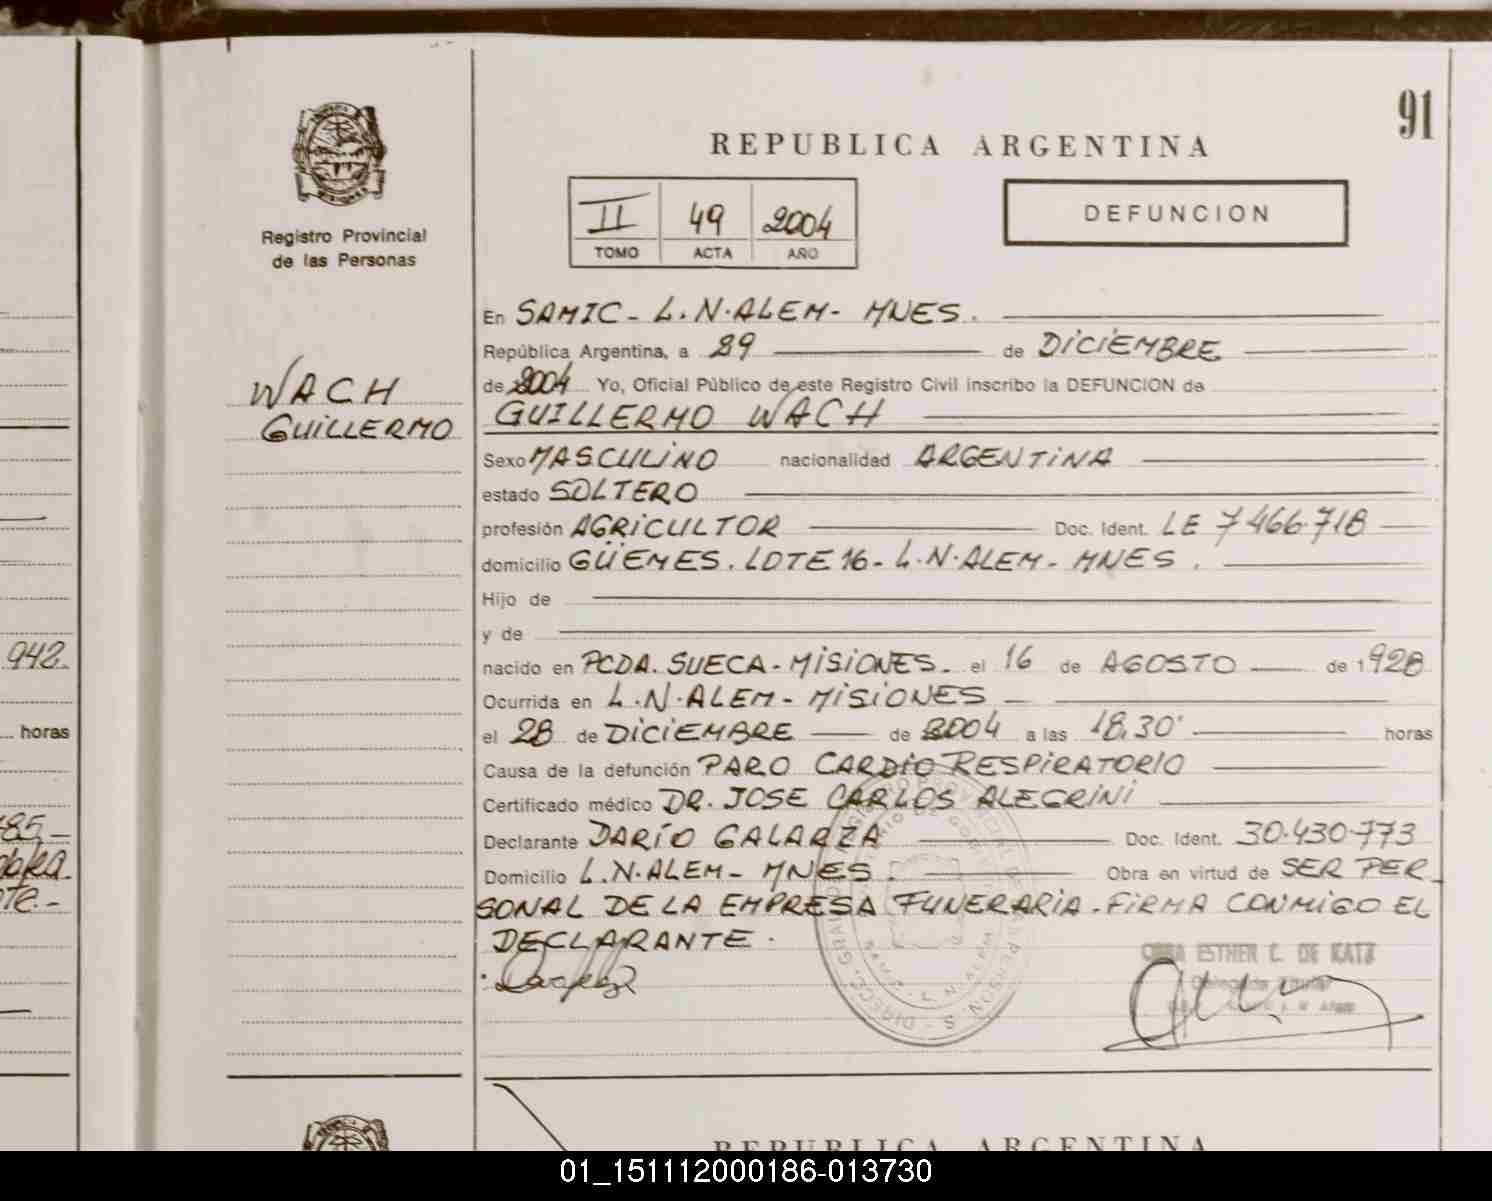 91
REPUBLICA ARGENTINA
II 49 2004
TOMO ACTA AÑO
DEFUNCION
Registro Provincial
de las Personas
WACH
GUILLERMO
En SAMIC - L.N.ALEM - MNES.
República Argentina, a 29 de DICIEMBRE
de 2004 Yo, Oficial Público de este Registro Civil inscribo la DEFUNCION de
GUILLERMO WACH
Sexo MASCULINO nacionalidad ARGENTINA
estado SOLTERO
profesión AGRICULTOR Doc. Ident. LE 7466.718
domicilio GÜEMES. LOTE 16 - L.N.ALEM - MNES.
Hijo de
y de
nacido en PCDA. SUECA - MISIONES. el 16 de AGOSTO de 1928
Ocurrida en L.N.ALEM - MISIONES
el 28 de DICIEMBRE de 2004 a las 18,30' horas
Causa de la defunción PARO CARDIO RESPIRATORIO
Certificado médico DR. JOSE CARLOS ALEGRINI
Declarante DARÍO GALARZA Doc. Ident. 30.430.773
Domicilio L.N.ALEM - MNES. Obra en virtud de SER PER-
SONAL DE LA EMPRESA FUNERARIA. FIRMA CONMIGO EL
DECLARANTE.
ESTHER C. DE KATZ
942.
horas
85
REPUBLICA ARGENTINA
01_151112000186-013730